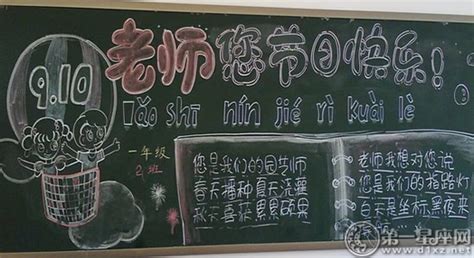 9.10
老师您节日快乐！
lǎo shī nín jié rì kuài lè
一年级
2班
您是我们的园艺师
春天播种夏天浇灌
秋天喜获累累硕果
老师我想对您说
您是我们的指路灯
白天是坐标黑夜来
第一星座网
www.d1xz.net